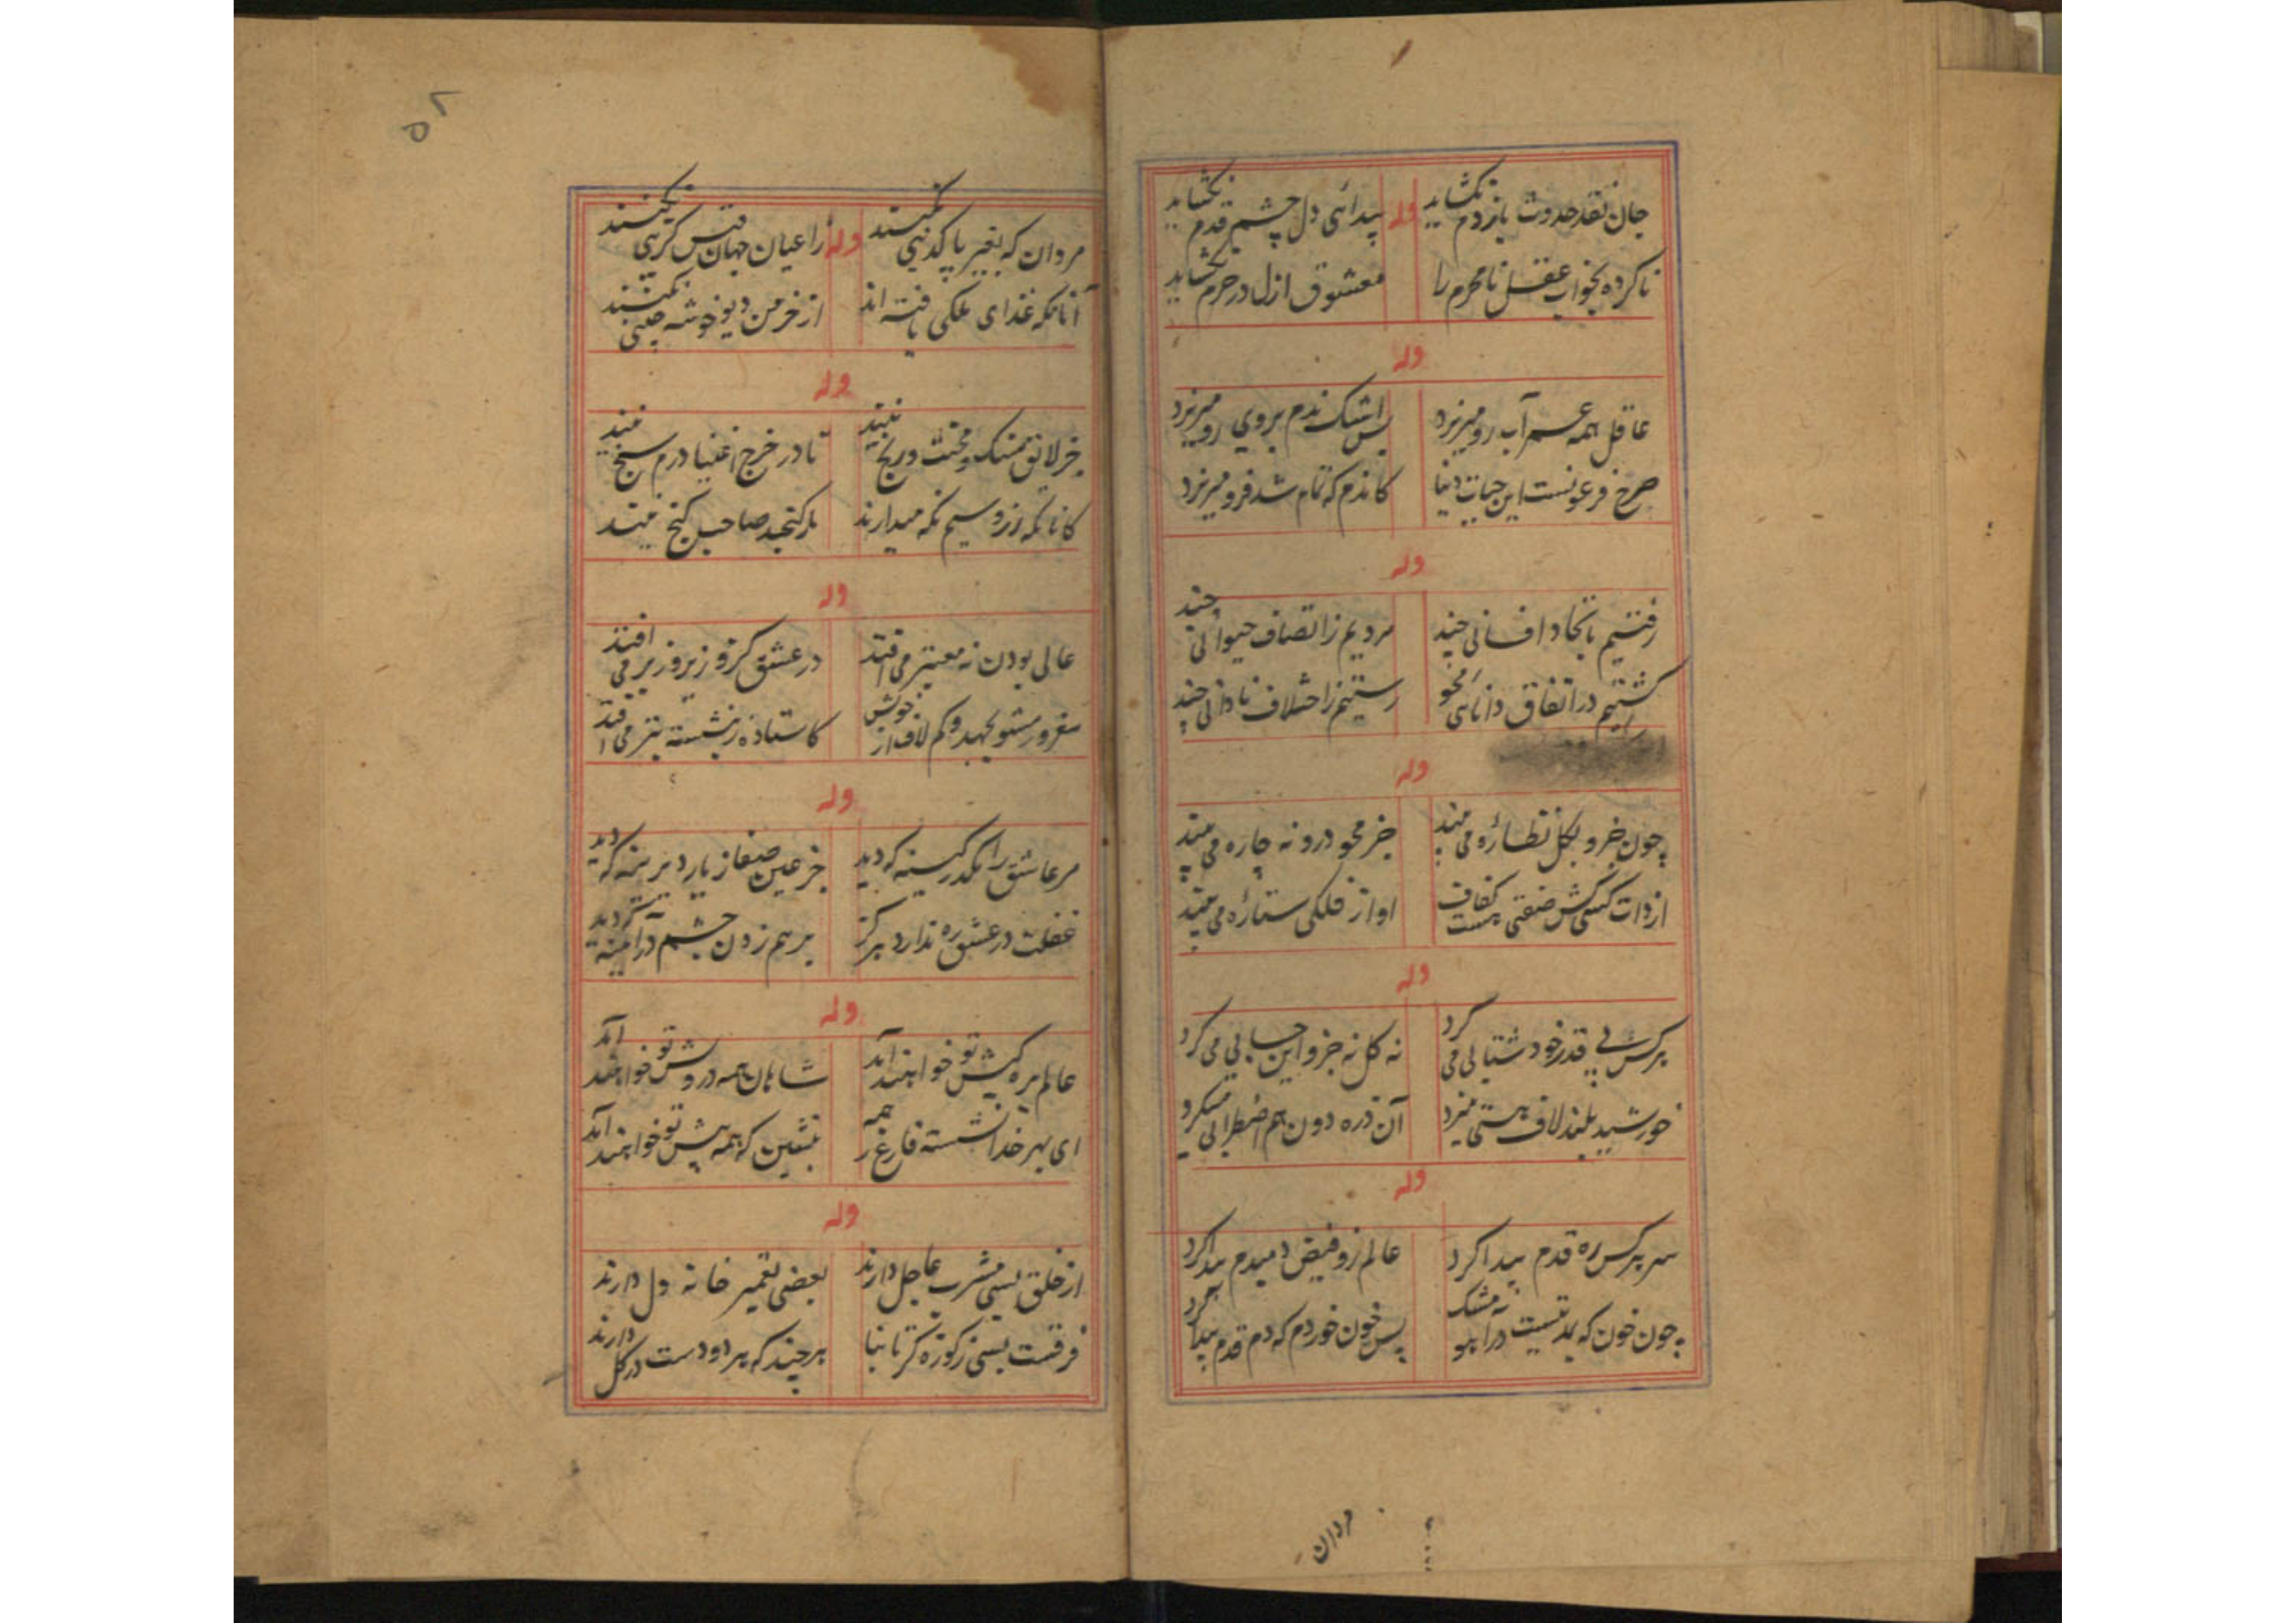 جان نقد حدوث باز دم نکشاید
وله
پیدائی دل چشم قدم نکشاید
ناکرده بخواب عقل نامحرم را
معشوق ازل در حرم نکشاید
وله
عاقل همه عمر آب رو میریزد
پس اشک ندم بروی رو میریزد
چرخ فرعونست این حیات دنیا
کاندم که تمام شد فرو میریزد
وله
رفتیم باتحاد افسانی چند
مردیم ز اتصاف حیوانی چند
گشتیم در اتفاق دانائی محو
رستیم ز اختلاف نادانی چند
وله
چون جزو بکل نظاره می بیند
جز محو درو نه چاره می بیند
از ذات کسی کش صفتی هست کفاف
او از فلکی ستاره می بیند
وله
هر کس بی قدر خود شتابی می کرد
نه کل نه جزو این حسابی می کرد
خورشید بلند لاف هستی میزد
آن ذره دون هم اضطرابی میکرد
وله
سر هر کس ره قدم پیدا کرد
عالم زو فیض دمیدم پیدا کرد
چون خون که بمدتیست در آهو مشک
پس خون خوردم که دم قدم پیدا کرد
مردان
۵۲
مردان که بغیر پاکدینی نکنند
وله
را عیان جهان قس گزینی نکنند
آنانکه غذای ملکی یافته اند
از خرمن دیو خوشه چینی نکنند
وله
جز لائق تمسک و محنت و رنج نیند
تا در خرج اغنیا درم سنج نیند
کانانکه زر و سیم نگه میدارند
مارکنجد صاحب گنج نیند
وله
عالی بودن نه معتبر می افتد
در عشق کزو زیر و زبر می افتد
مغرور مشو بجهد و کم لاف از خویش
کاستاده ز نشسته بتر می افتد
وله
مر عاشق را مکدر کینه که دید
جز عین صفا ز یار دیرینه که دید
غفلت در عشق ره ندارد هرگز
بر هم زدن چشم در آئینه که دید
وله
عالم بره کیش تو خواهند آمد
شاهان همه درویش تو خواهند آمد
ای بهر خدا نشسته فارغ ز همه
بنشین که همه پیش تو خواهند آمد
وله
از خلق بسی مشرب عاجل دارند
بعضی تعمیر خانه دل دارند
فرقست بسی ز کوزه گر تا بنا
هر چند که هر دو دست در گل دارند